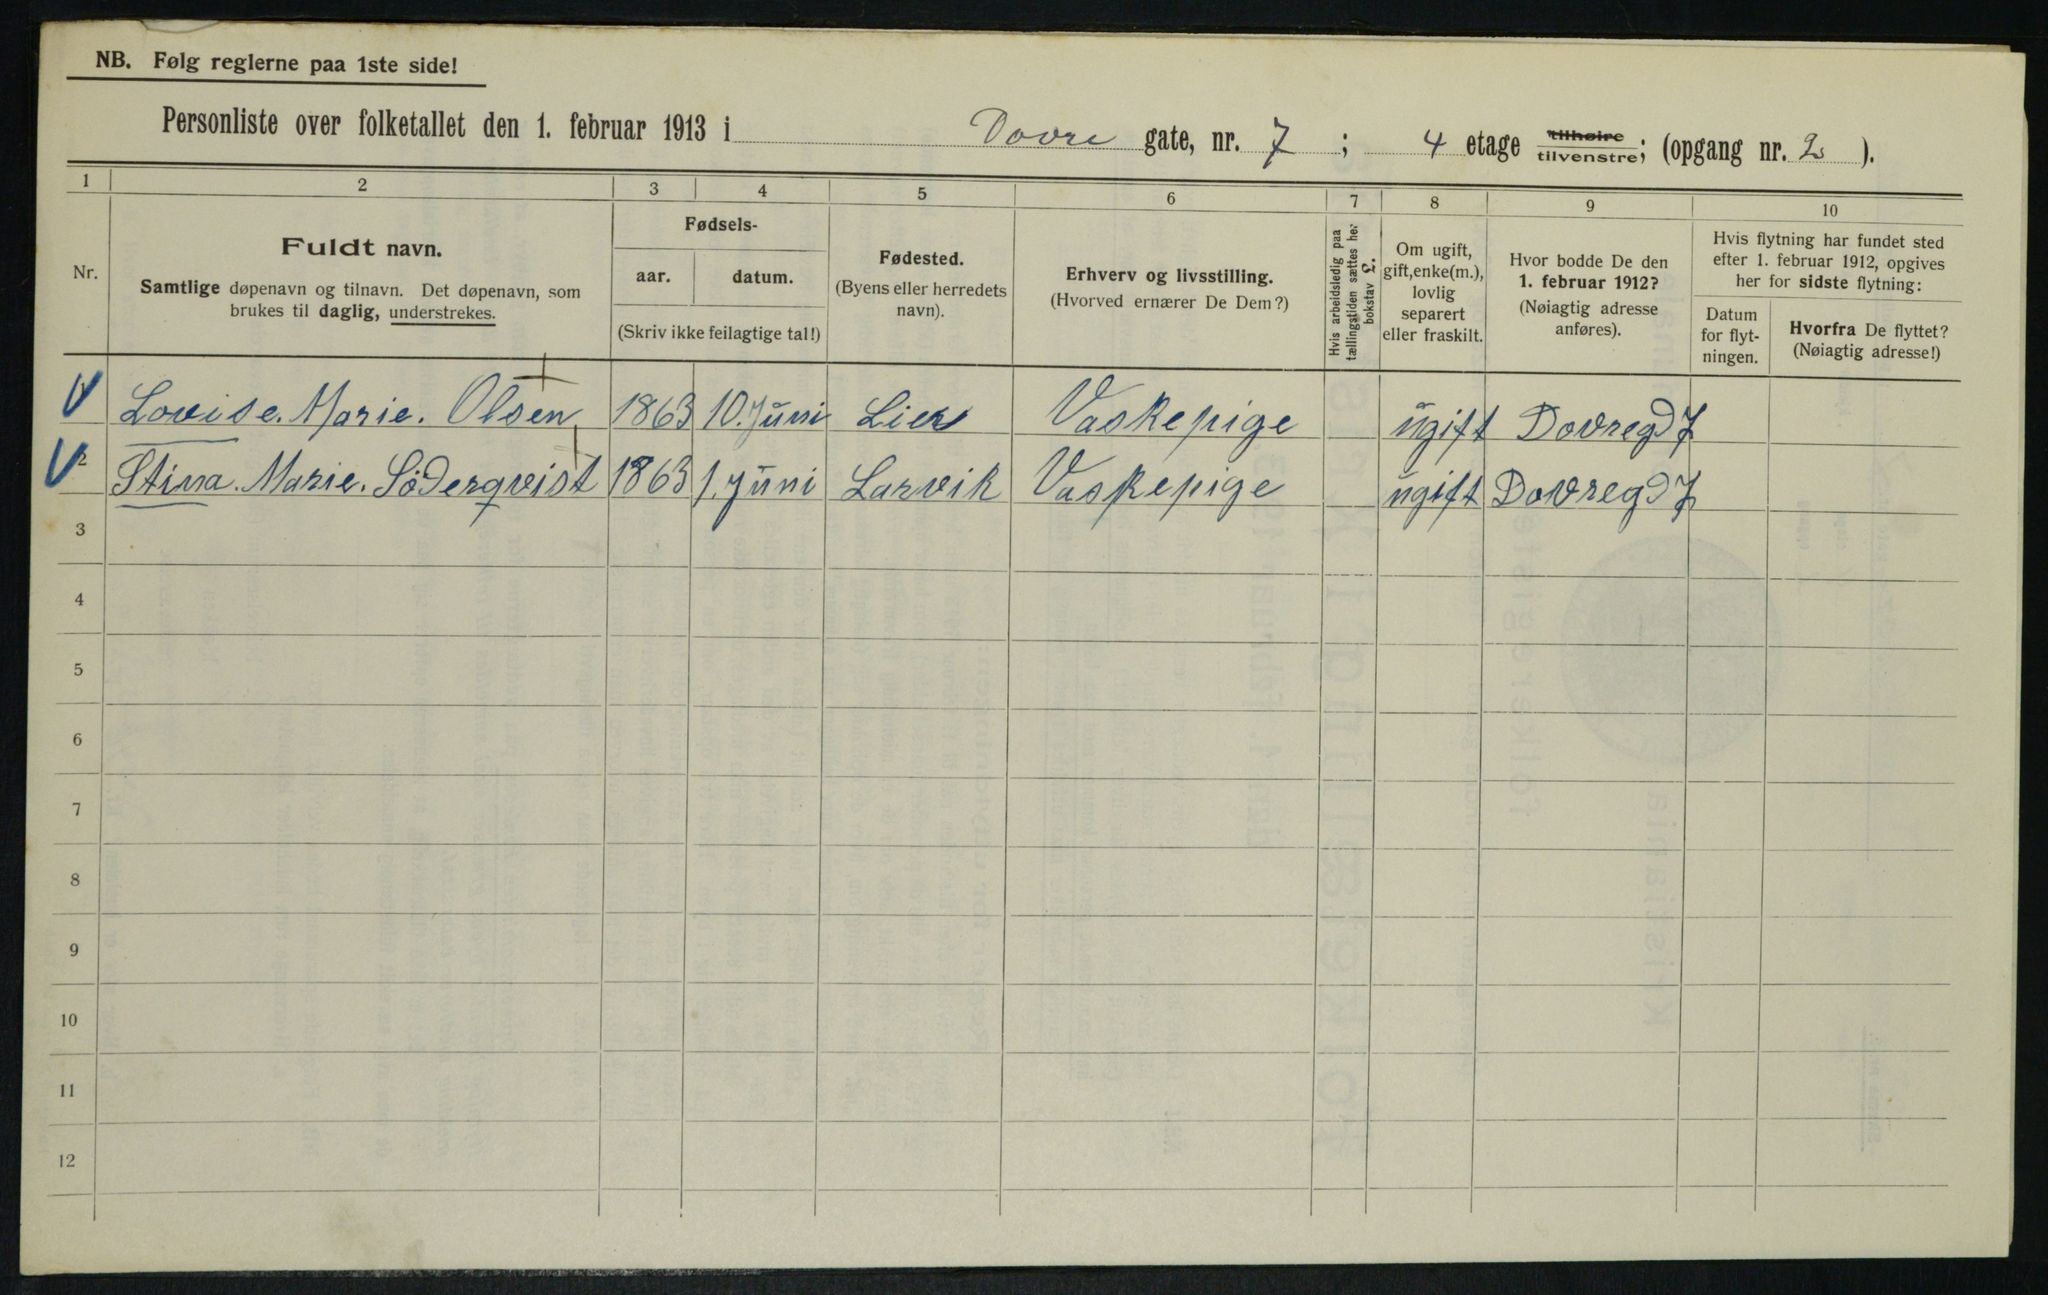 NB. Følg reglerne paa 1ste side!
Personliste over folketallet den 1. februar 1913 i Dovre gate, nr. 7 ; 4 etage tilhøire tilvenstre; (opgang nr. 2 ).
1 2 3 4 5 6 7 8 9 10
Nr.
Fuldt navn.
Samtlige døpenavn og tilnavn. Det døpenavn, som
brukes til daglig, understrekes.
Fødsels-
aar. datum.
(Skriv ikke feilagtige tal!)
Fødested.
(Byens eller herredets
navn).
Erhverv og livsstilling.
(Hvorved ernærer De Dem?)
Hvis arbeidsledig paa
tællingstiden sættes her
bokstav £.
Om ugift,
gift, enke(m.),
lovlig
separert
eller fraskilt.
Hvor bodde De den
1. februar 1912?
(Nøiagtig adresse
anføres).
Hvis flytning har fundet sted
efter 1. februar 1912, opgives
her for sidste flytning:
Datum
for flyt-
ningen.
Hvorfra De flyttet?
(Nøiagtig adresse!)
Lovise. Marie. Olsen 1863 10. Juni Lier Vaskepige ugift Dovregd 7
2 Stina. Marie. Söderqvist 1863 1. Juni Larvik Vaskepige ugift Dovregd 7
3
4
5
6
7
8
9
10
11
12